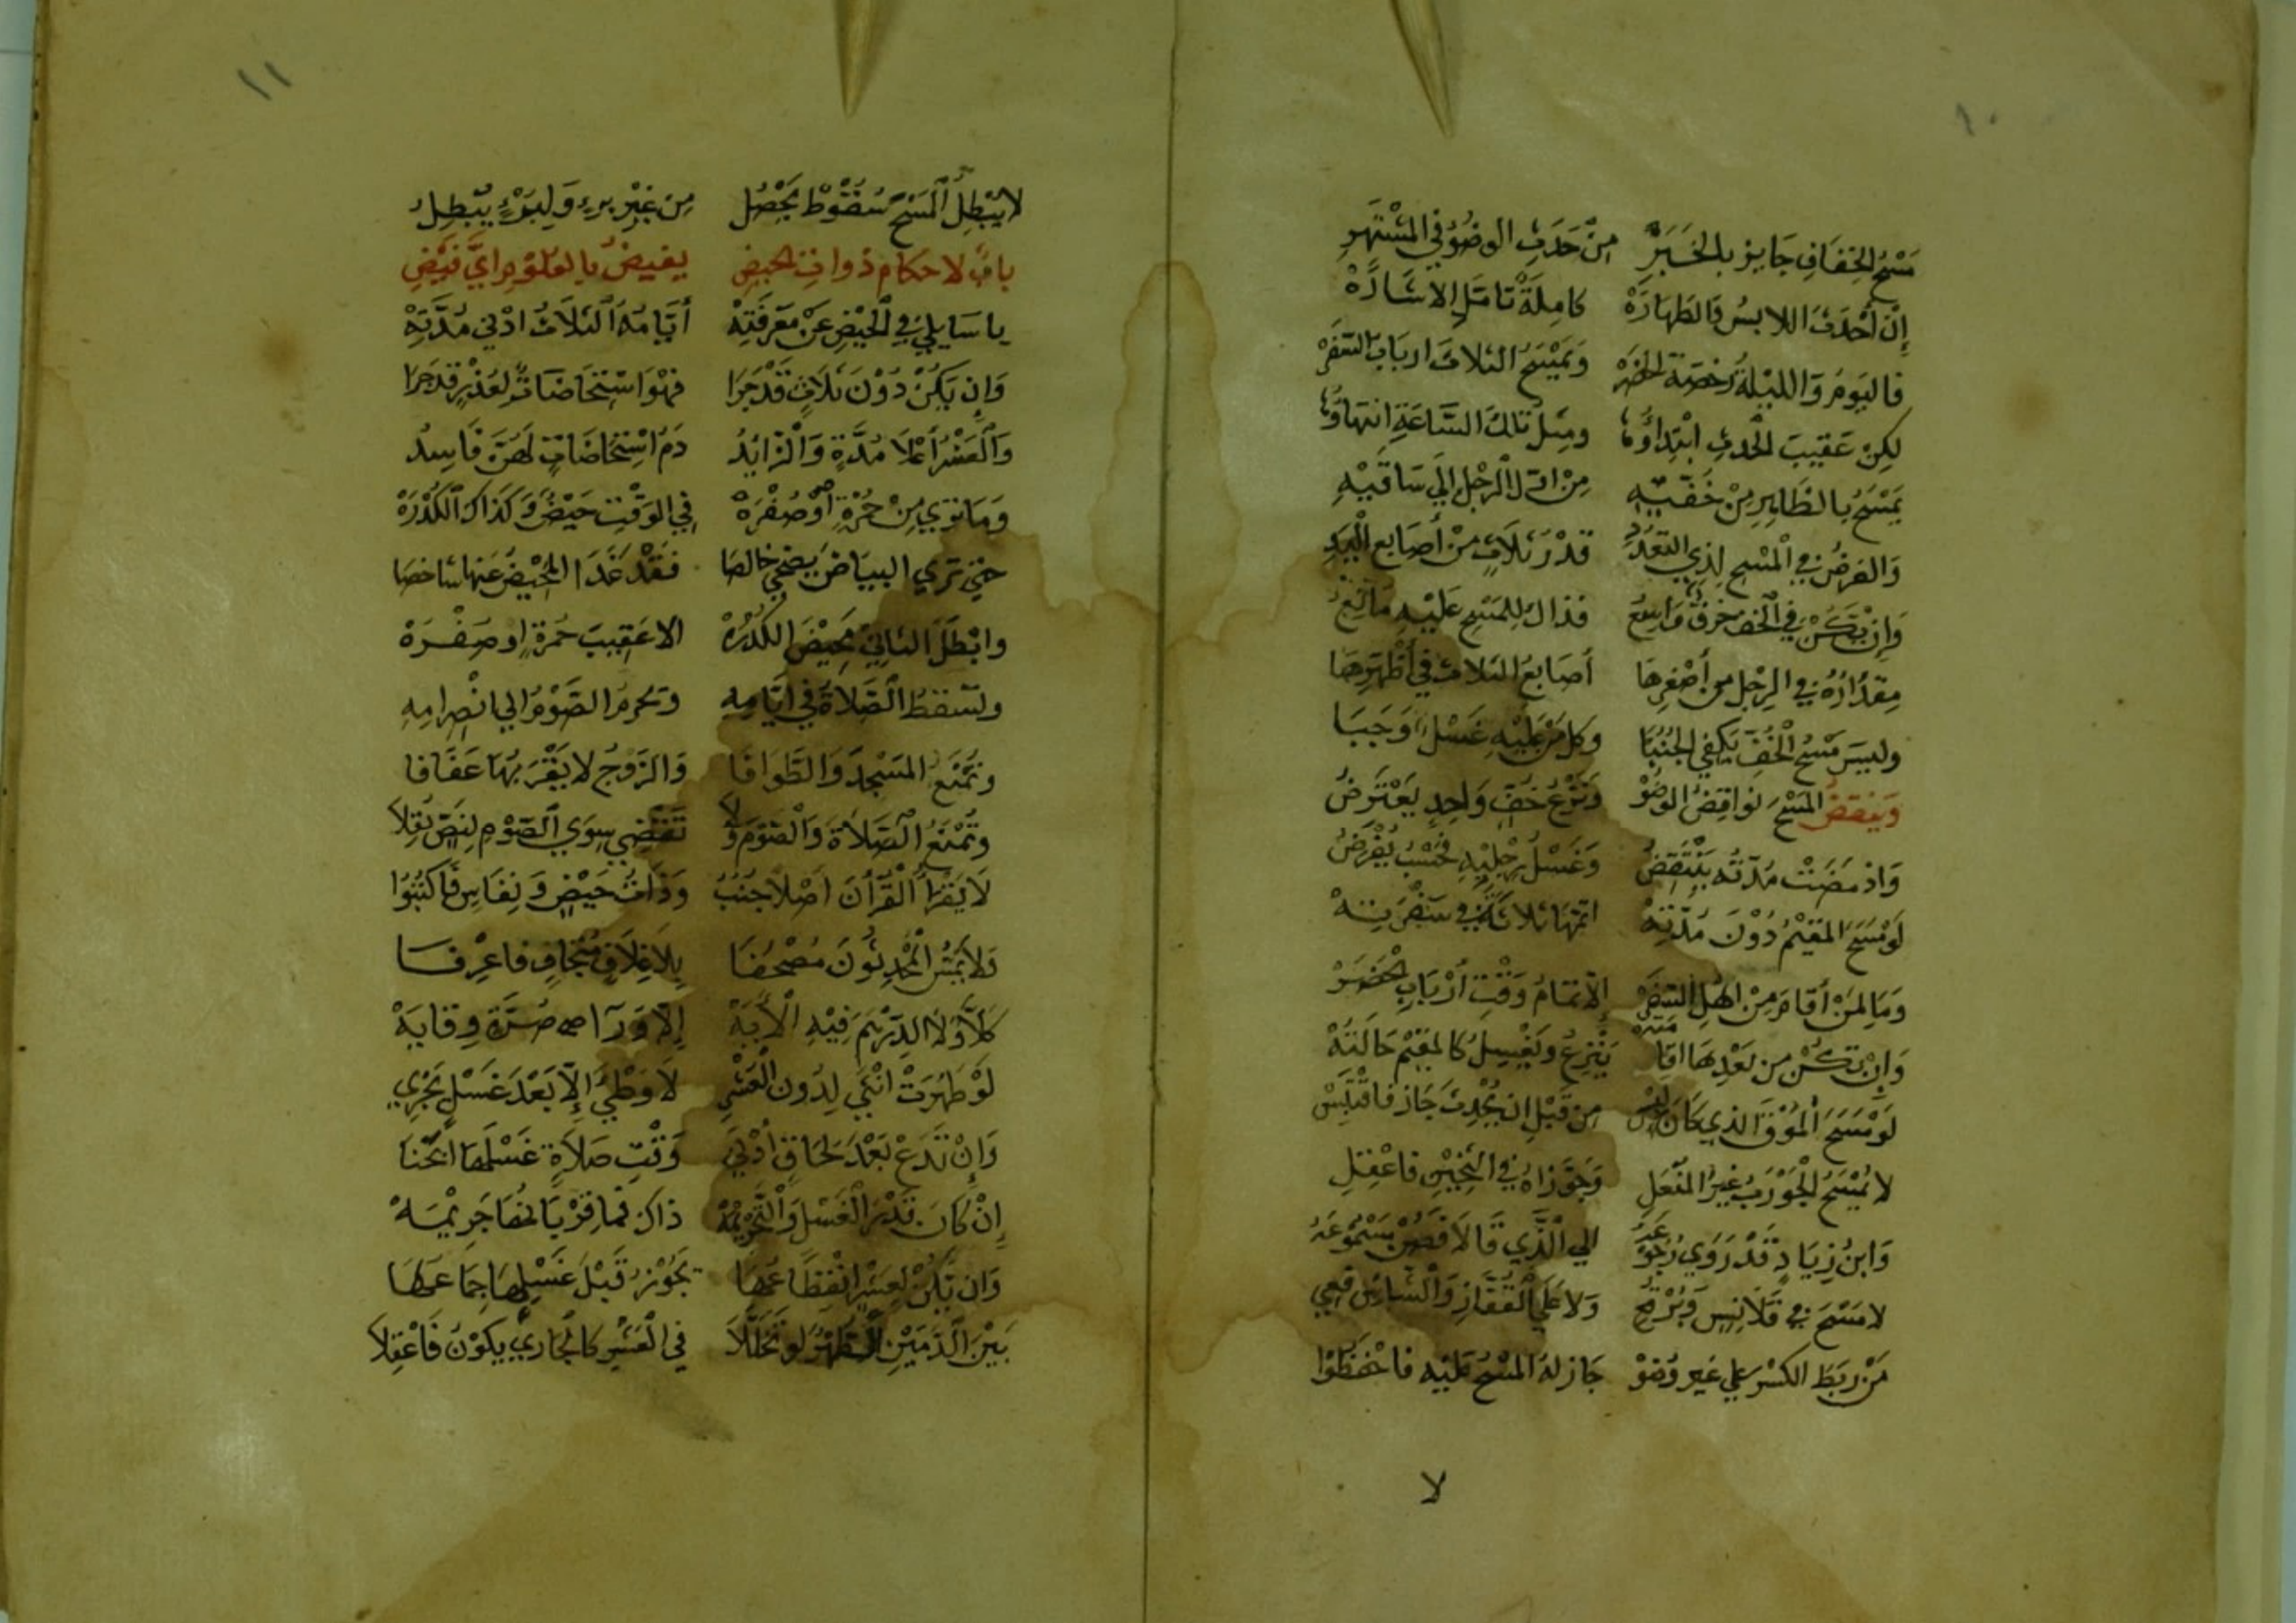 ١٠
مَسْحُ الخِفَافِ جَايز بالخَبَرِ مِنْ حَدَثِ الوضُوُ في المشْتَهَرِ
إِنْ أحْدَثَ اللابسُ فالطَهارَهْ كامِلَةٌ تامّلِ الاشَارَهْ
فاليَومُ وَالليْلةُ رُخصَة الحضَرْ وَيمْسَحُ الثلاثَ اربَابُ السَّفَرْ
لكِنْ عَقيبَ الحَدثِ ابْتِدَاؤُها ومِثلُ تلكَ السَّاعَةِ انتِهاؤُها
يَمْسَحُ بالظَاهِرِ مِنْ خُفَّيْهِ مِنْ اوّل الرِجْلِ إلَي سَاقَيْهِ
وَالفرضُ في المَسْحِ لِذِي التعَدُّدِ قدْرُ ثَلَاثٍ مِنْ أصَابع الْيَدِ
وَإنْ تكُنْ في الخُفِ خرقٌ وَاسِعُ فذاكَ لِلمَسْحِ عَليْهِ مَانِعُ
مِقدَارُهُ في الرِجْلِ من أصْغرِهَا أصَابعُ الثلاث في أظْهَرِهَا
وليسَ مَسْحُ الْخُفِّ يَكفي الجنُبَا وَكل مَنْ عَليْهِ غسْلٌ وَجَبَا
وَينقضُ المَسْحَ نواقِضُ الوضُوْ وَنَزْعُ خفٍّ وَاحِدٍ يَعْتَرضُ
وَاذ مَضَتْ مُدّتُه يَنْتَقِضُ وَغَسْلُ رِجْليْهِ فحَسْبُ يُفْرَضُ
لَوْ مَسَحَ المُقيْمُ دُوْنَ مُدّتِهْ اتمّهَا ثلاثَةً في سَفْرَتِهْ
وَمَا لمَنْ أقامَ مِنْ اهْلِ السَّفَرْ إلاّ تمَامُ وَقْتِ أرْبَابِ الحَضَرْ
وَإنْ تكُنْ مِن بَعْدِهَا اقامَتهْ يَنْزِعُ ويَغْسِلُ كالمقيْم حَالَتُهْ
لَوْ مَسَحَ المُوْقَ الذي كانَ لبِسْ مِن قَبْلِ ان يُحْدِثَ جَازَ فاقْتَبِسْ
لا يُمْسَحُ الْجَوْرَبُ غيرُ المنْعَلِ وَجَوَّزاهُ في الثّخِيْنِ فاعْقِلِ
وَابنُ زِيَادٍ قَدْ رَوَي رُجُوْعَهُ إلي الَّذِي قالا فَصُنْ مَسْمُوْعَهُ
لا مَسْحَ في قَلَانِسٍ وَبُرْقُعِ وَلا عَلَي الْقُفّازِ وَالسَّاتر فعِي
مَنْ رَبَطَ الكسْرَ علي غيرِ وُضوْ جَازَ لهُ المَسْحُ عَليْهِ فاحْفظُوْا
لا
١١
لا يُبْطِلُ الْمَسْحَ سُقُوْط يَحْصُلُ مِن غيْرِ بُرءٍ وَلِبُرْءٍ يُبْطِلُ
بابٌ لاحكام ذواتِ الحيضِ يفيضُ بالعُلوْمِ اَيَّ فَيْضِ
يا سَايِلي في الْحَيْضِ عَنْ مَعرفَتِهْ أيّامُهُ الثلَاثُ ادْني مُدَّتِهْ
وَإن يَكُنْ دُوْنَ ثلَاثٍ قَدْ جَرَا فهْوَ اسْتِحَاضَاتٌ لعُذْرٍ قد جَرَا
وَالْعَشْرُ أعْلَا مُدَّةٍ وَالزَّايدُ دَمُ اسْتِحَاضَاتٍ لَهُنَّ فَاسِدُ
وَمَا تري مِنْ حُمْرَةٍ أوْ صُفْرَهْ في الوَقْتِ حَيْضٌ وَكَذَاكَ الْكُدْرَهْ
حَتي تري البيَاضَ يُضحي خَالصَا فقَدْ غَدَا الْمَحِيْضُ عَنها شاخصَا
وابْطَلَ الثاني محِيْضَ الكُدْرَهْ الا عَقِيبَ حُمْرةٍ اوصفْرَهْ
ولتسْقطُ الصَّلاةُ في ايَّامِهِ وَتَحرمُ الصَّوْمُ الي انْصِرامِهِ
وتُمْنَعُ المَسْجِدَ وَالطَّوافا وَالزَّوْجُ لا يَقْرَبُهَا عَفَافا
وَتُمْنَعُ الصَّلاةَ وَالصَّوْمَ وَلَا تَقْضي سِوَي الصَّوْمِ لِنَصٍّ نُقِلَا
لَا يَقْرأُ الْقُرْآنَ أصْلاً جُنُبُ وَذَاتُ حَيْضٍ وَنِفَاسٍ فاكتُبُوا
وَلا يَمَسُّ المُحْدِثُوْنَ مُصْحَفَا بِلَا غِلَافٍ مُتَجافٍ فاعْرِفَا
كَلاَّ وَلَا الدِّرْهَمَ فِيْهِ الْأيَهْ إلاّ وَرَآ صُرَّةٍ وِقايَهْ
لَوْ طَهُرَتْ انْثَي لِدُونِ الْعَشْرِ لَا وَطْيَ إِلاّ بَعْدَ غَسْلٍ يَجْرِي
وَإنْ تَدَعْ بَعْدَ لحاقٍ أدْنَي وَقْتِ صَلَاةٍ غَسْلَهَا ابَحْنَا
إنْ كانَ قَدْرَ الْغَسْلِ وَالتَّحْرِيْمَهْ ذاكَ فمَا قرْبَانُها جَرِيْمَهْ
وَان يَكُنْ لِعَشْرٍ انْقِطَاعُهَا يَجُوْزُ قَبْلَ غَسْلِهَا جِمَاعُهَا
بَيْنَ الدَّمَيْنِ الطُهْرُ لوْ تَخَلَّلَا في الْعَشْرِ كالْجَاري يكوْنُ فَاعْقِلَا